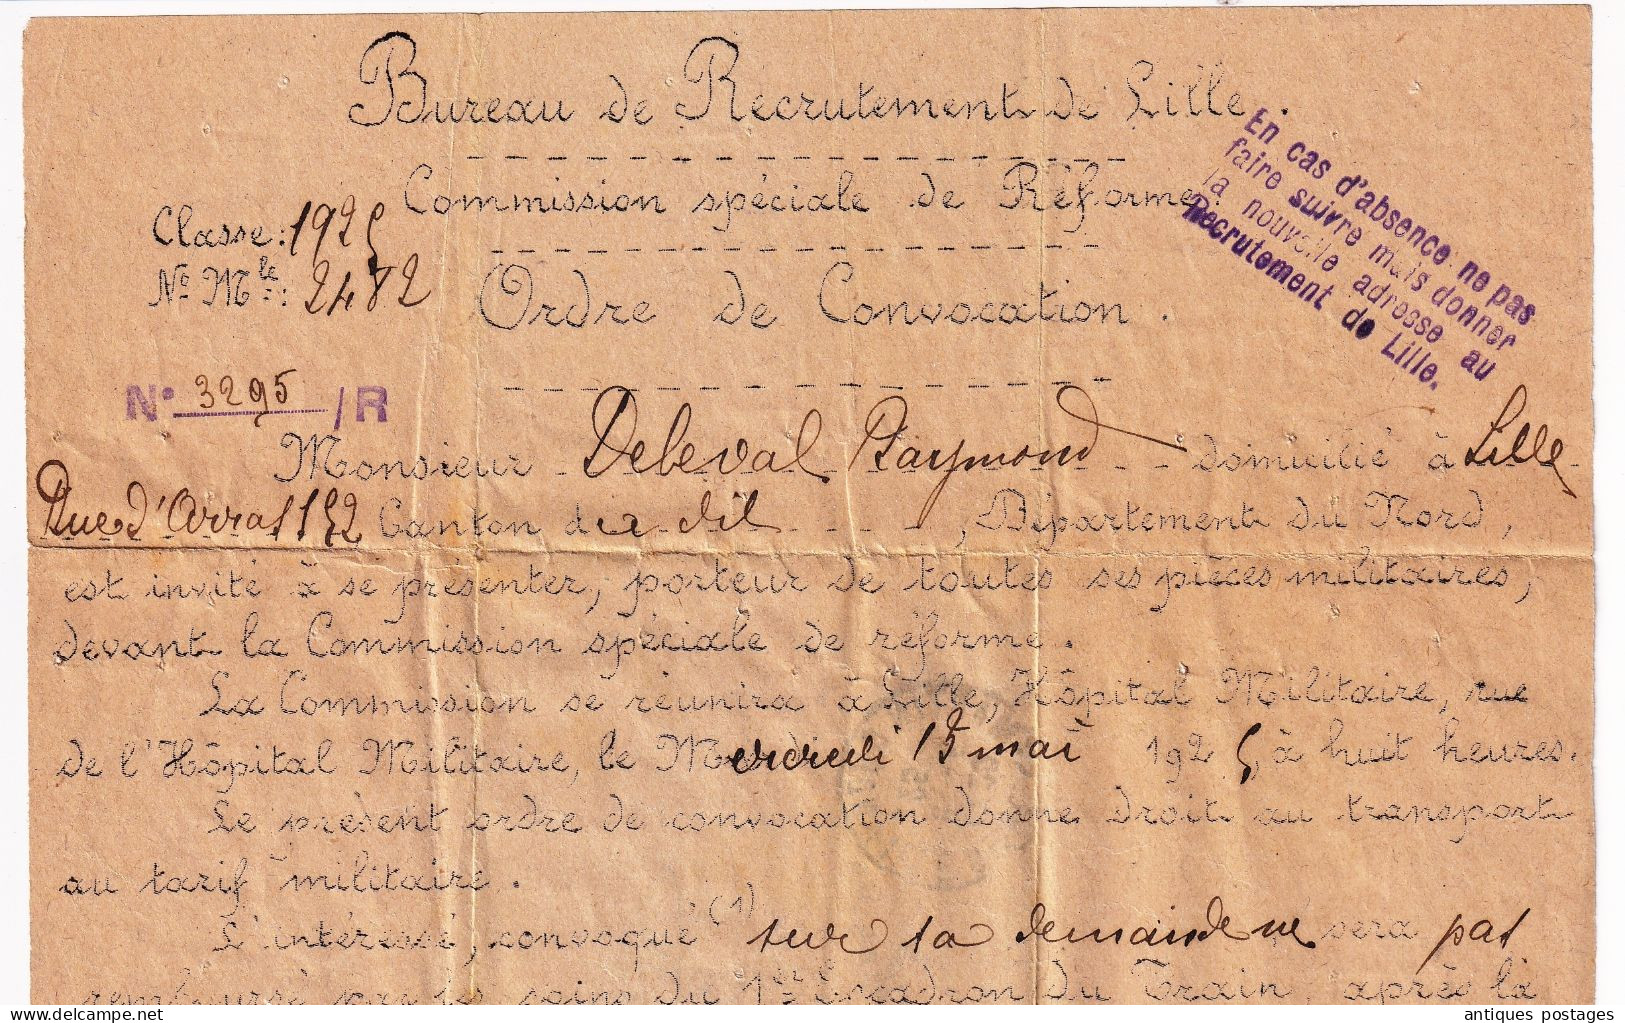 Bureau de Recrutement de Lille.
Commission spéciale de Réforme.
Classe: 1925
No Mle: 2482
Ordre de Convocation.
En cas d'absence ne pas
faire suivre mais donner
la nouvelle adresse au
Recrutement de Lille.
No 3295 /R
Monsieur Deleval Raymond domicilié à Lille
Rue d'Arras 152 Canton du dit, Département du Nord,
est invité à se présenter, porteur de toutes ses pièces militaires,
devant la Commission spéciale de réforme.
La Commission se réunira à Lille, Hôpital Militaire, rue
de l'Hôpital Militaire, le vendredi 15 mai 1925, à huit heures.
Le présent ordre de convocation donne droit au transport
au tarif militaire.
L'intéressé, convoqué (1) sur sa demande ne sera pas
remboursé par les soins du 1er Escadron du Train, après la
antiques postages